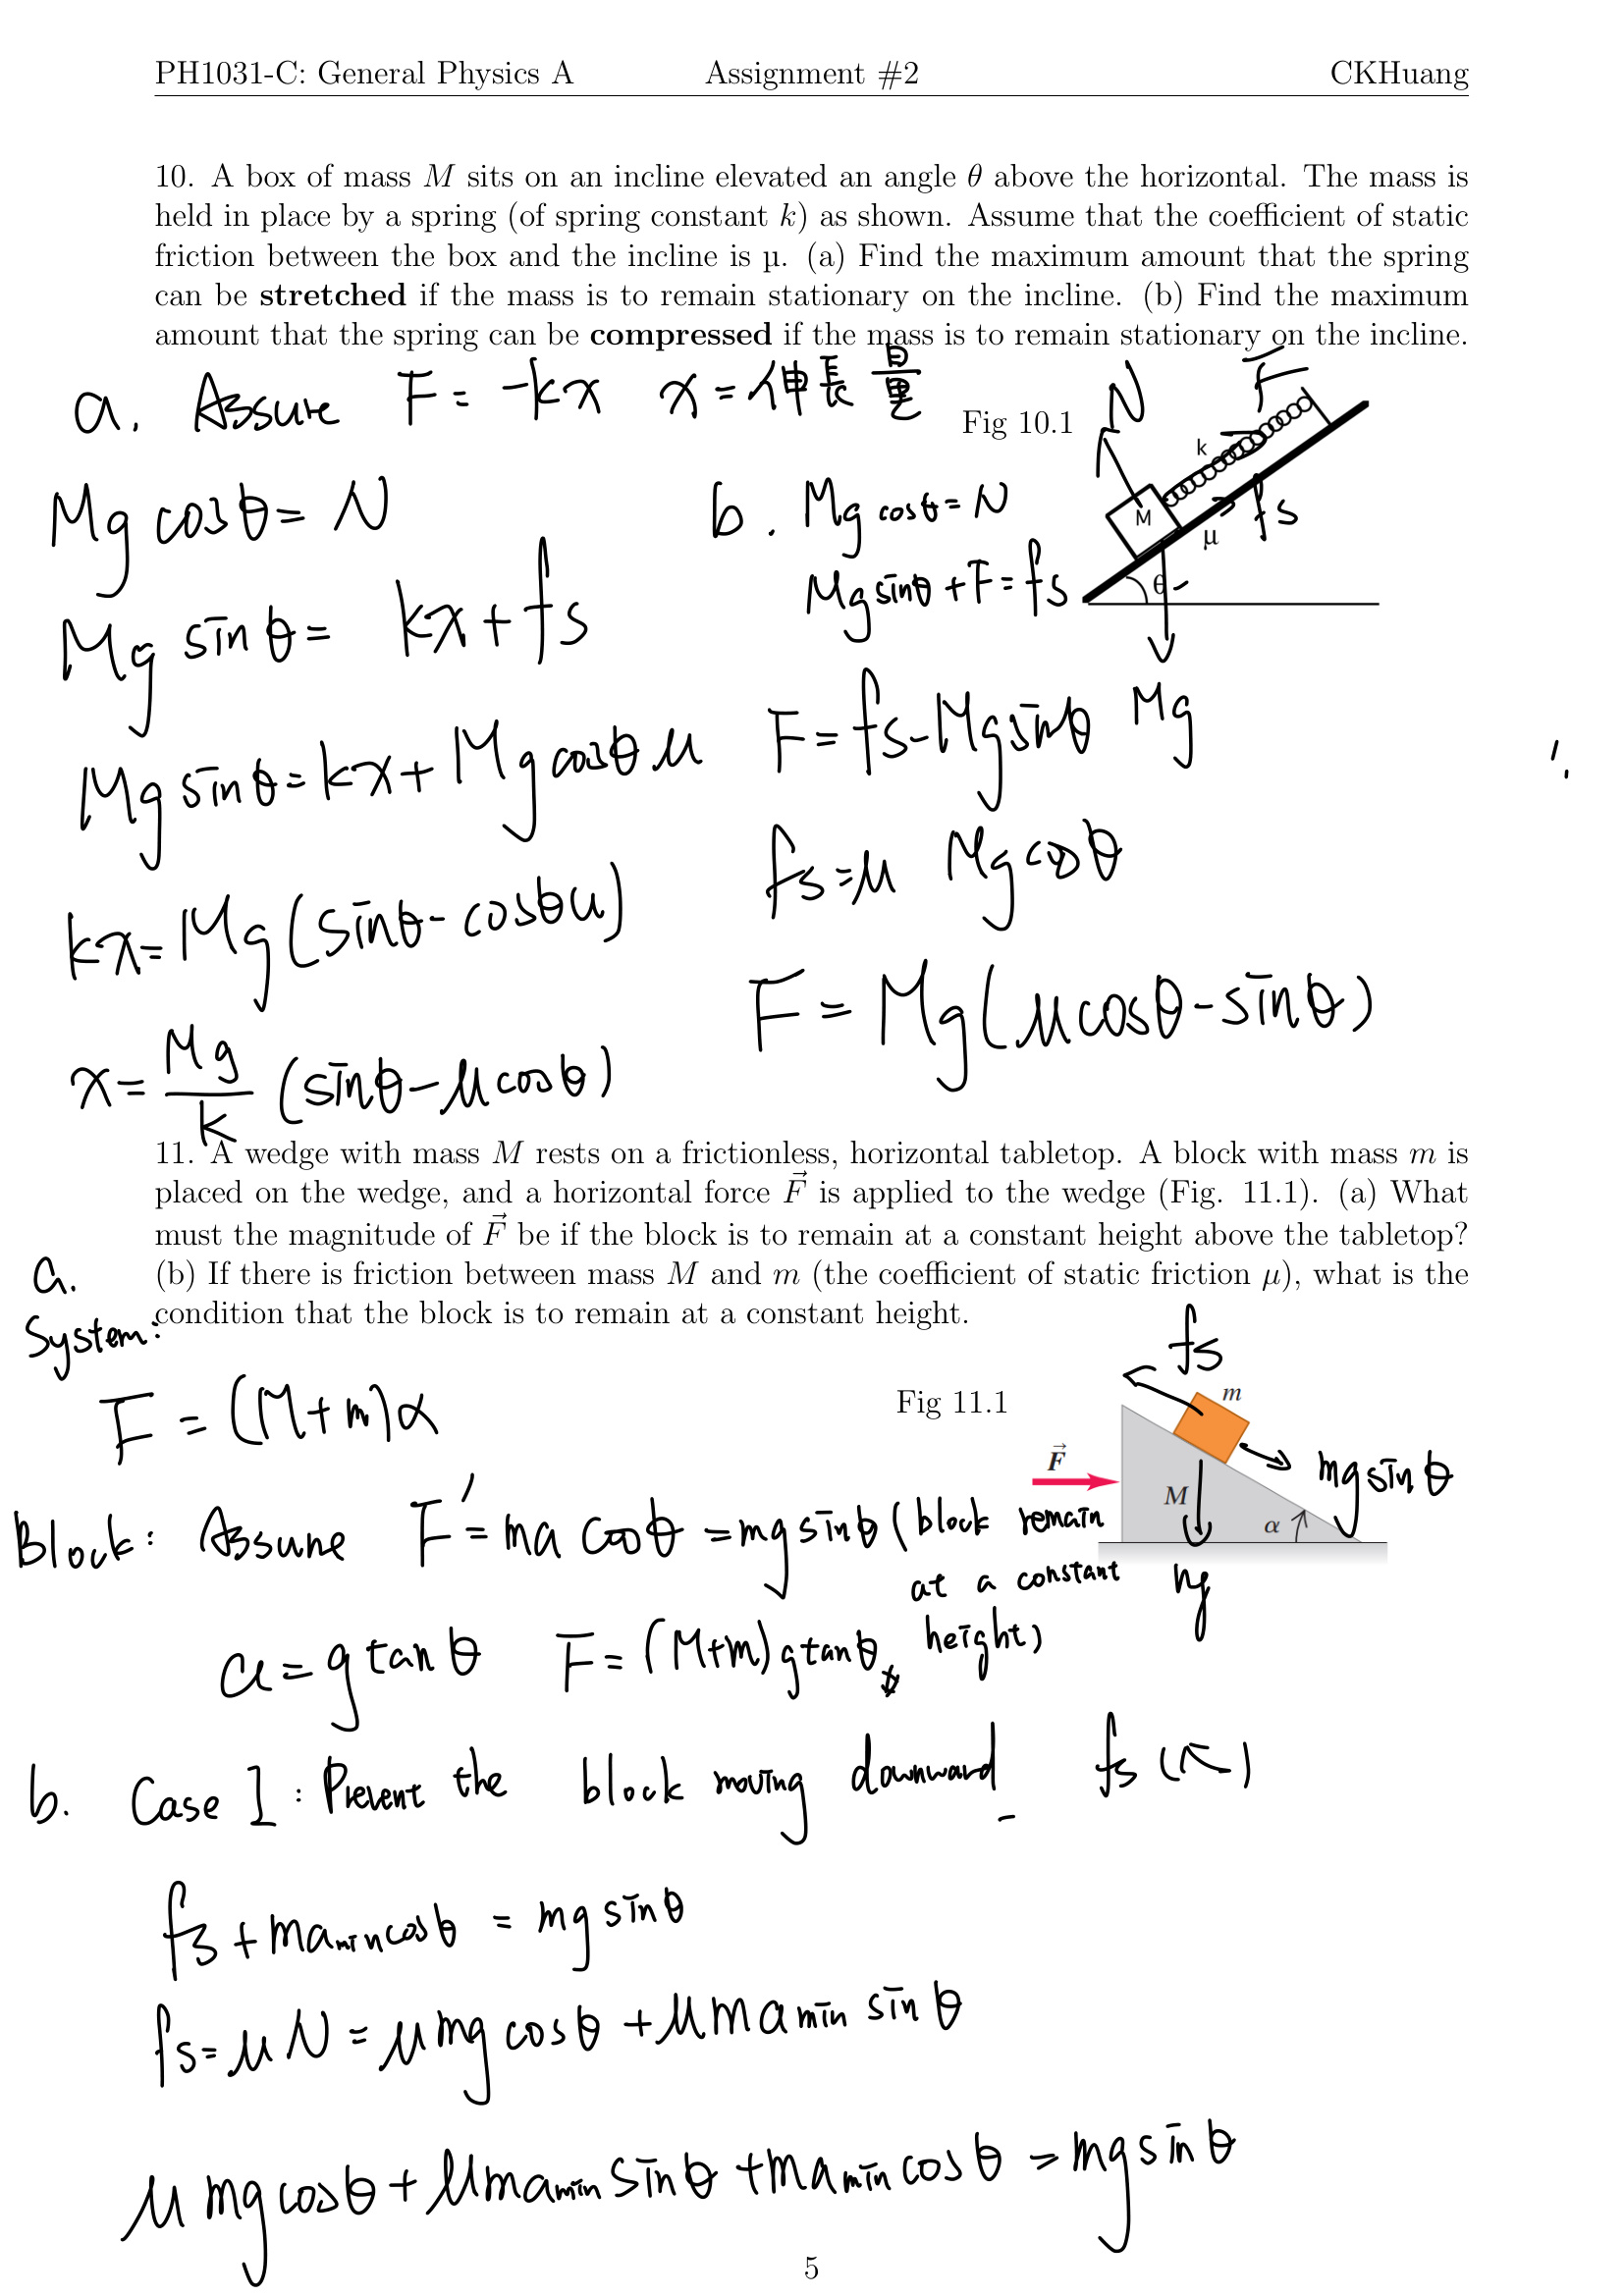 PH1031-C: General Physics A Assignment #2 CKHuang
10. A box of mass M sits on an incline elevated an angle θ above the horizontal. The mass is
held in place by a spring (of spring constant k) as shown. Assume that the coefficient of static
friction between the box and the incline is µ. (a) Find the maximum amount that the spring
can be stretched if the mass is to remain stationary on the incline. (b) Find the maximum
amount that the spring can be compressed if the mass is to remain stationary on the incline.
a. Assure F = -kx x = 伸長量
Fig 10.1
N
F
k
M
fs
μ
θ
Mg
Mg cosθ = N
Mg sinθ = kx + fs
Mg sinθ = kx + Mg cosθ μ
kx = Mg (sinθ - cosθ u)
x = Mg/k (sinθ - μ cosθ)
b. Mg cosθ = N
Mg sinθ + F = fs
F = fs - Mg sinθ
fs = μ Mg cosθ
F = Mg (μcosθ - sinθ)
11. A wedge with mass M rests on a frictionless, horizontal tabletop. A block with mass m is
placed on the wedge, and a horizontal force F⃗ is applied to the wedge (Fig. 11.1). (a) What
must the magnitude of F⃗ be if the block is to remain at a constant height above the tabletop?
(b) If there is friction between mass M and m (the coefficient of static friction μ), what is the
condition that the block is to remain at a constant height.
a.
System:
F = (M+m)α
Fig 11.1
fs
m
F⃗
M
mg sinθ
α
mg
Block: Assume F' = ma cosθ = mg sinθ (block remain
at a constant
height)
a = g tanθ F = (M+m) g tanθ
b. Case 1: Prevent the block moving downward fs (↖)
fs + ma min cosθ = mg sinθ
fs = μN = μmg cosθ + μma min sinθ
μmg cosθ + μma min sinθ + ma min cosθ = mg sinθ
5